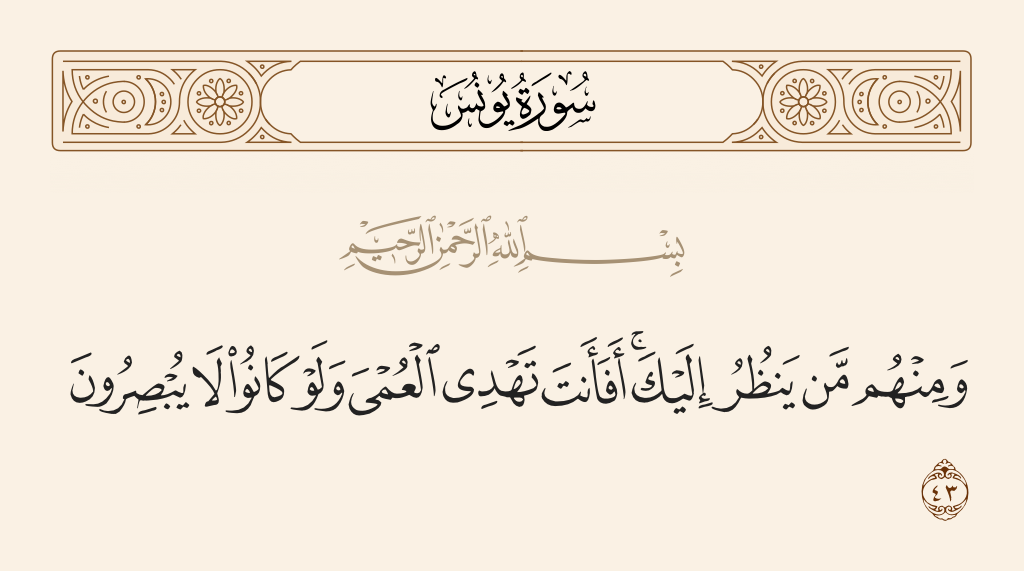 سُورَةُ يُونُسَ
بِسْمِ ٱللَّهِ ٱلرَّحْمَٰنِ ٱلرَّحِيمِ
وَمِنْهُم مَّن يَنظُرُ إِلَيْكَ ۚ أَفَأَنتَ تَهْدِى ٱلْعُمْىَ وَلَوْ كَانُوا۟ لَا يُبْصِرُونَ
٤٣